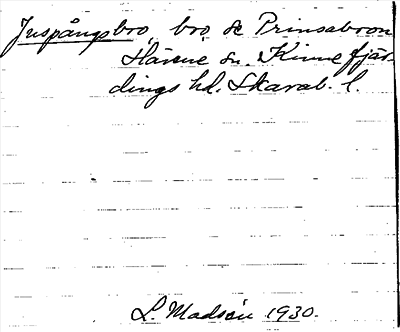 Juspångsbro, bro, se Prinsabron
Härene sn. Kinnefjär-
dings hd. Skarab. l.
L. Madsén 1930.